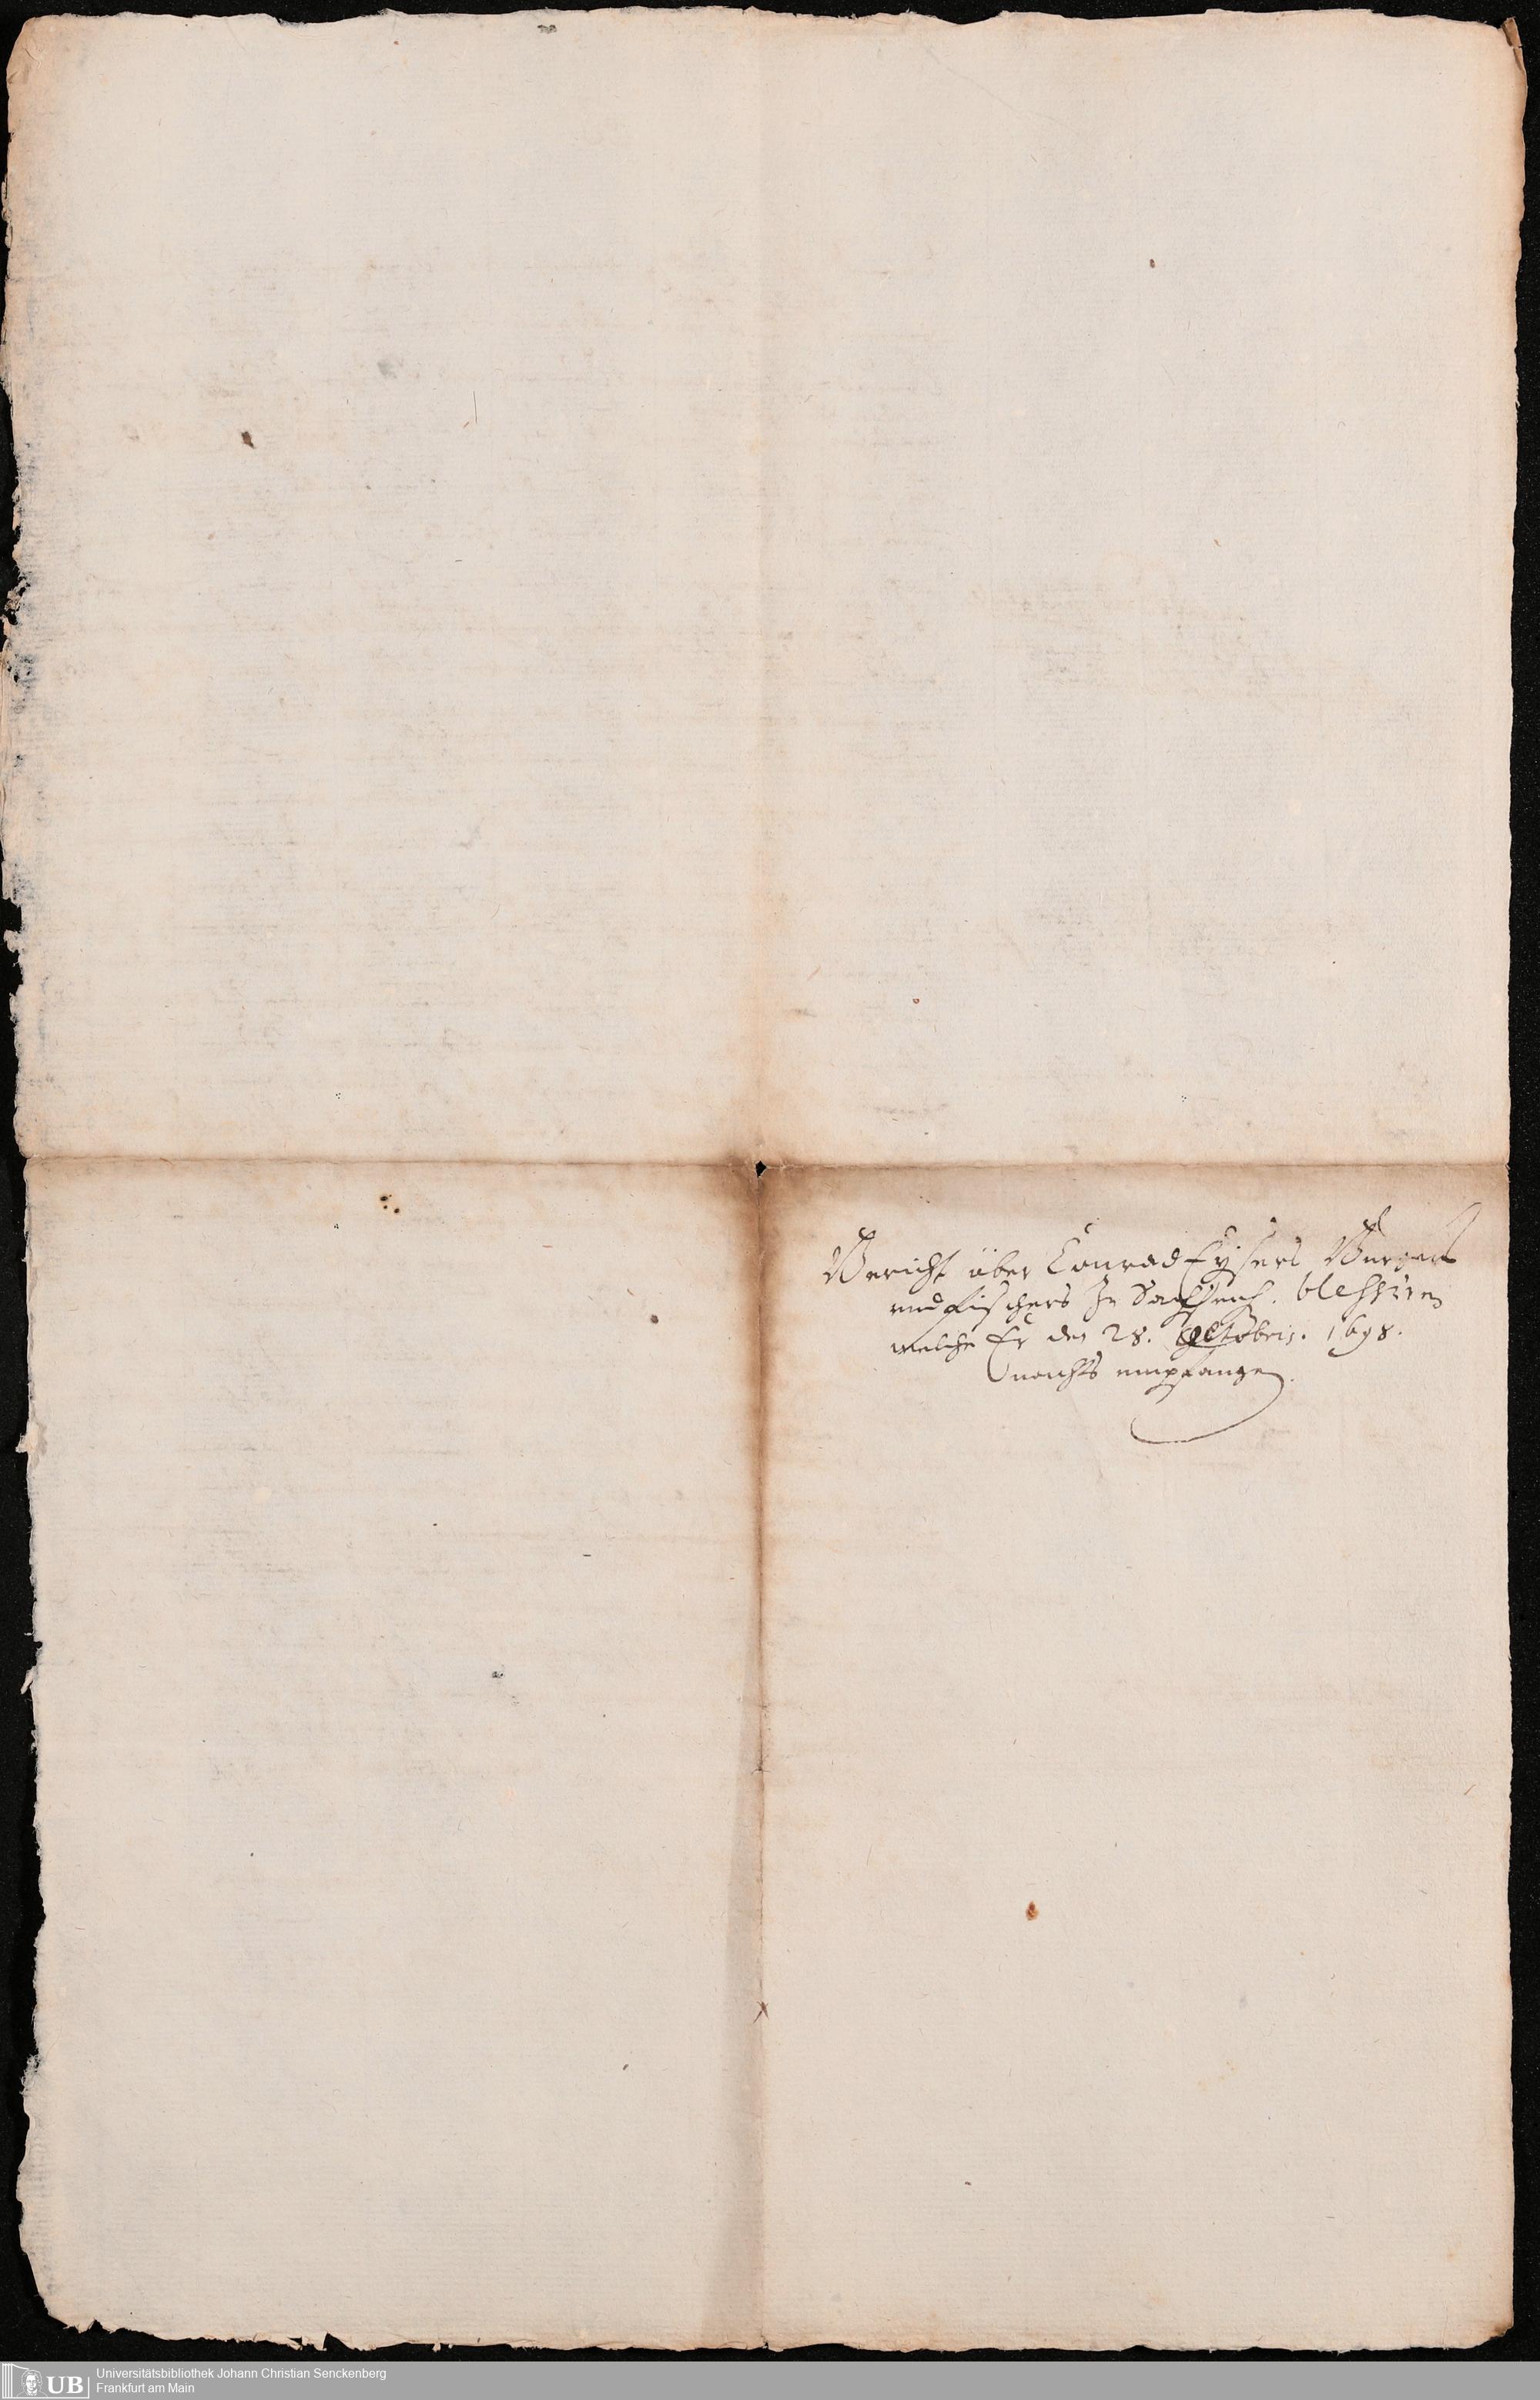 Bericht über Conrad Eysers Burgers
und fischers In Sachsenh. blessuren
welche Er den 28. Octobris. 1698.
nachts empfangen.
UB
Universitätsbibliothek Johann Christian Senckenberg
Frankfurt am Main